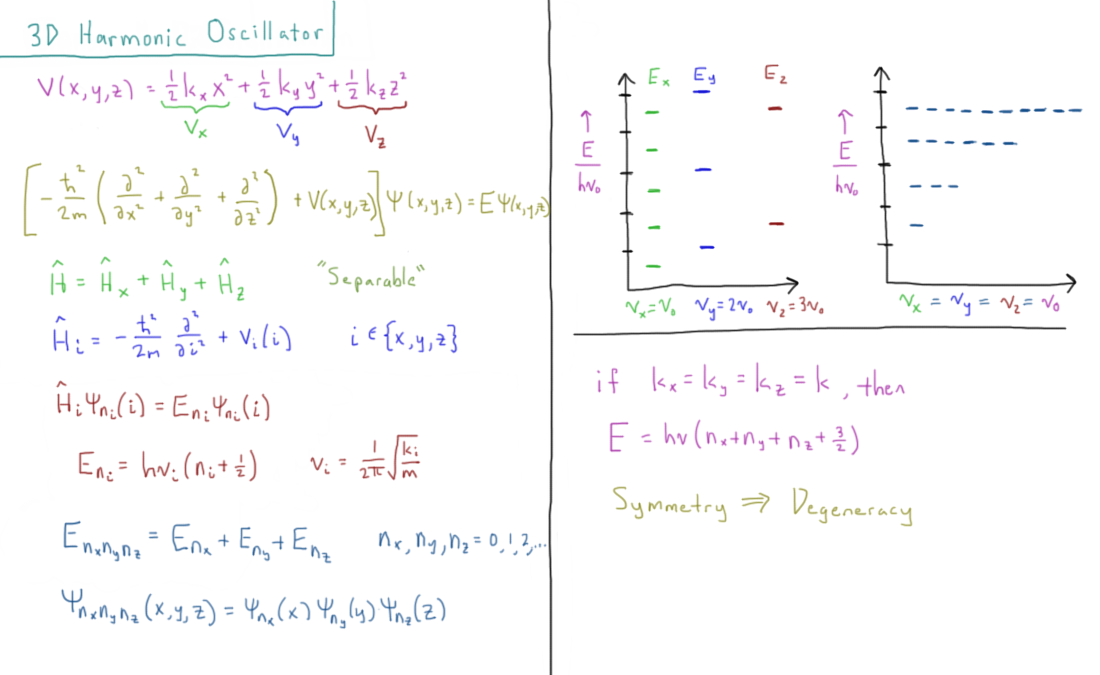 3D Harmonic Oscillator
V(x,y,z) = ½kₓx² + ½k_y y² + ½k_z z²
Vₓ V_y V_z
[-ħ²/2m (∂²/∂x² + ∂²/∂y² + ∂²/∂z²) + V(x,y,z)] Ψ(x,y,z) = EΨ(x,y,z)
Ĥ = Ĥₓ + Ĥ_y + Ĥ_z "Separable"
Ĥᵢ = -ħ²/2m ∂²/∂i² + Vᵢ(i) i ∈ {x,y,z}
Ĥᵢ Ψ_nᵢ(i) = E_nᵢ Ψ_nᵢ(i)
E_nᵢ = hνᵢ(nᵢ + ½) νᵢ = 1/2π √(kᵢ/m)
E_nₓn_yn_z = E_nₓ + E_n_y + E_n_z nₓ, n_y, n_z = 0,1,2,...
Ψ_nₓn_yn_z(x,y,z) = Ψ_nₓ(x) Ψ_n_y(y) Ψ_n_z(z)
Eₓ E_y E_z
↑ E/hν₀
νₓ=ν₀ ν_y=2ν₀ ν_z=3ν₀
↑ E/hν₀
νₓ = ν_y = ν_z = ν₀
if kₓ = k_y = k_z = k, then
E = hν(nₓ+n_y+n_z+3/2)
Symmetry ⇒ Degeneracy